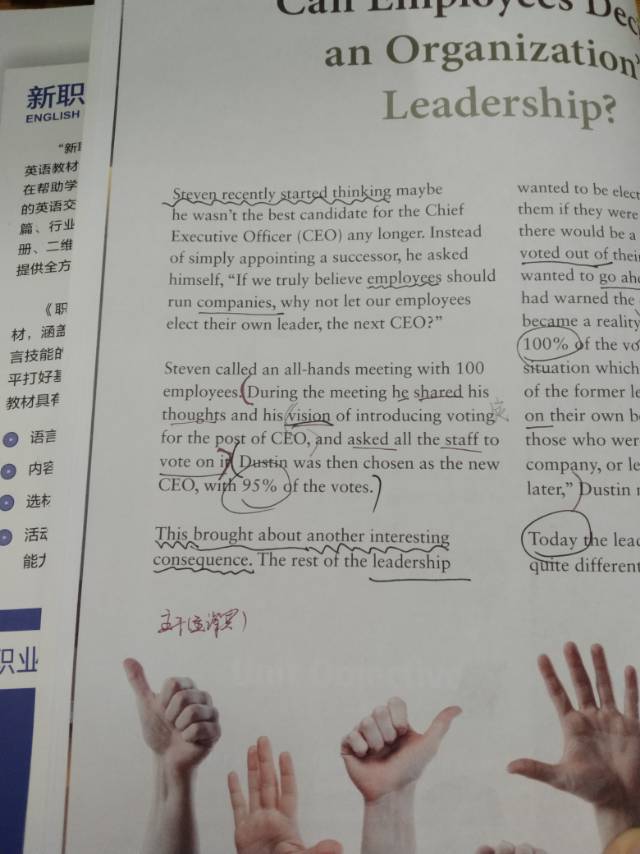 Can Employees
an Organization'
Leadership?
Steven recently started thinking maybe
he wasn't the best candidate for the Chief
Executive Officer (CEO) any longer. Instead
of simply appointing a successor, he asked
himself, “If we truly believe employees should
run companies, why not let our employees
elect their own leader, the next CEO?”
Steven called an all-hands meeting with 100
employees. During the meeting he shared his
thoughts and his vision of introducing voting
for the post of CEO, and asked all the staff to
vote on it. Dustin was then chosen as the new
CEO, with 95% of the votes.
This brought about another interesting
consequence. The rest of the leadership
wanted to be elect
them if they were
there would be a
voted out of thei
wanted to go ahe
had warned the
became a reality
100% of the vo
situation which
of the former le
on their own b
those who wer
company, or le
later,” Dustin
Today the lead
quite different
新职
ENGLISH
“新职
英语教材
在帮助学
的英语交
篇、行业
册、二维
提供全方
《职
材，涵盖
言技能的
平打好基
教材具有
语言
内容
选材
活动
能力
职业